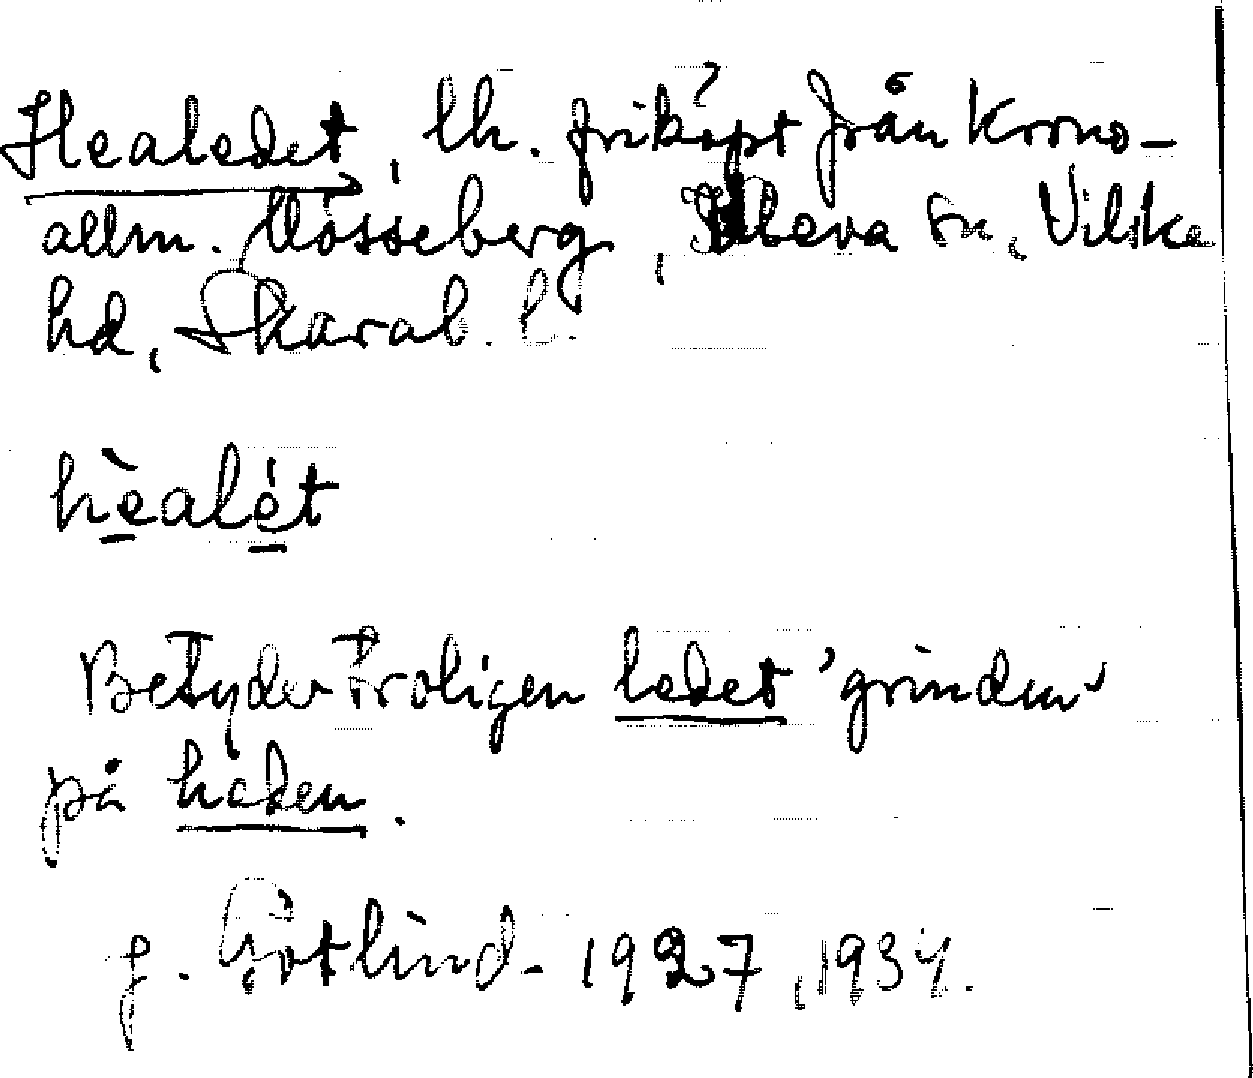 Healedet, lh. friköpt från Krono-
allm. Mösseberg, Kleva sn, Vilske
hd, Skarab. l.
hèalét
Betyder troligen ledet 'grinden'
på heden.
J. Götlind. 1927, 1934.